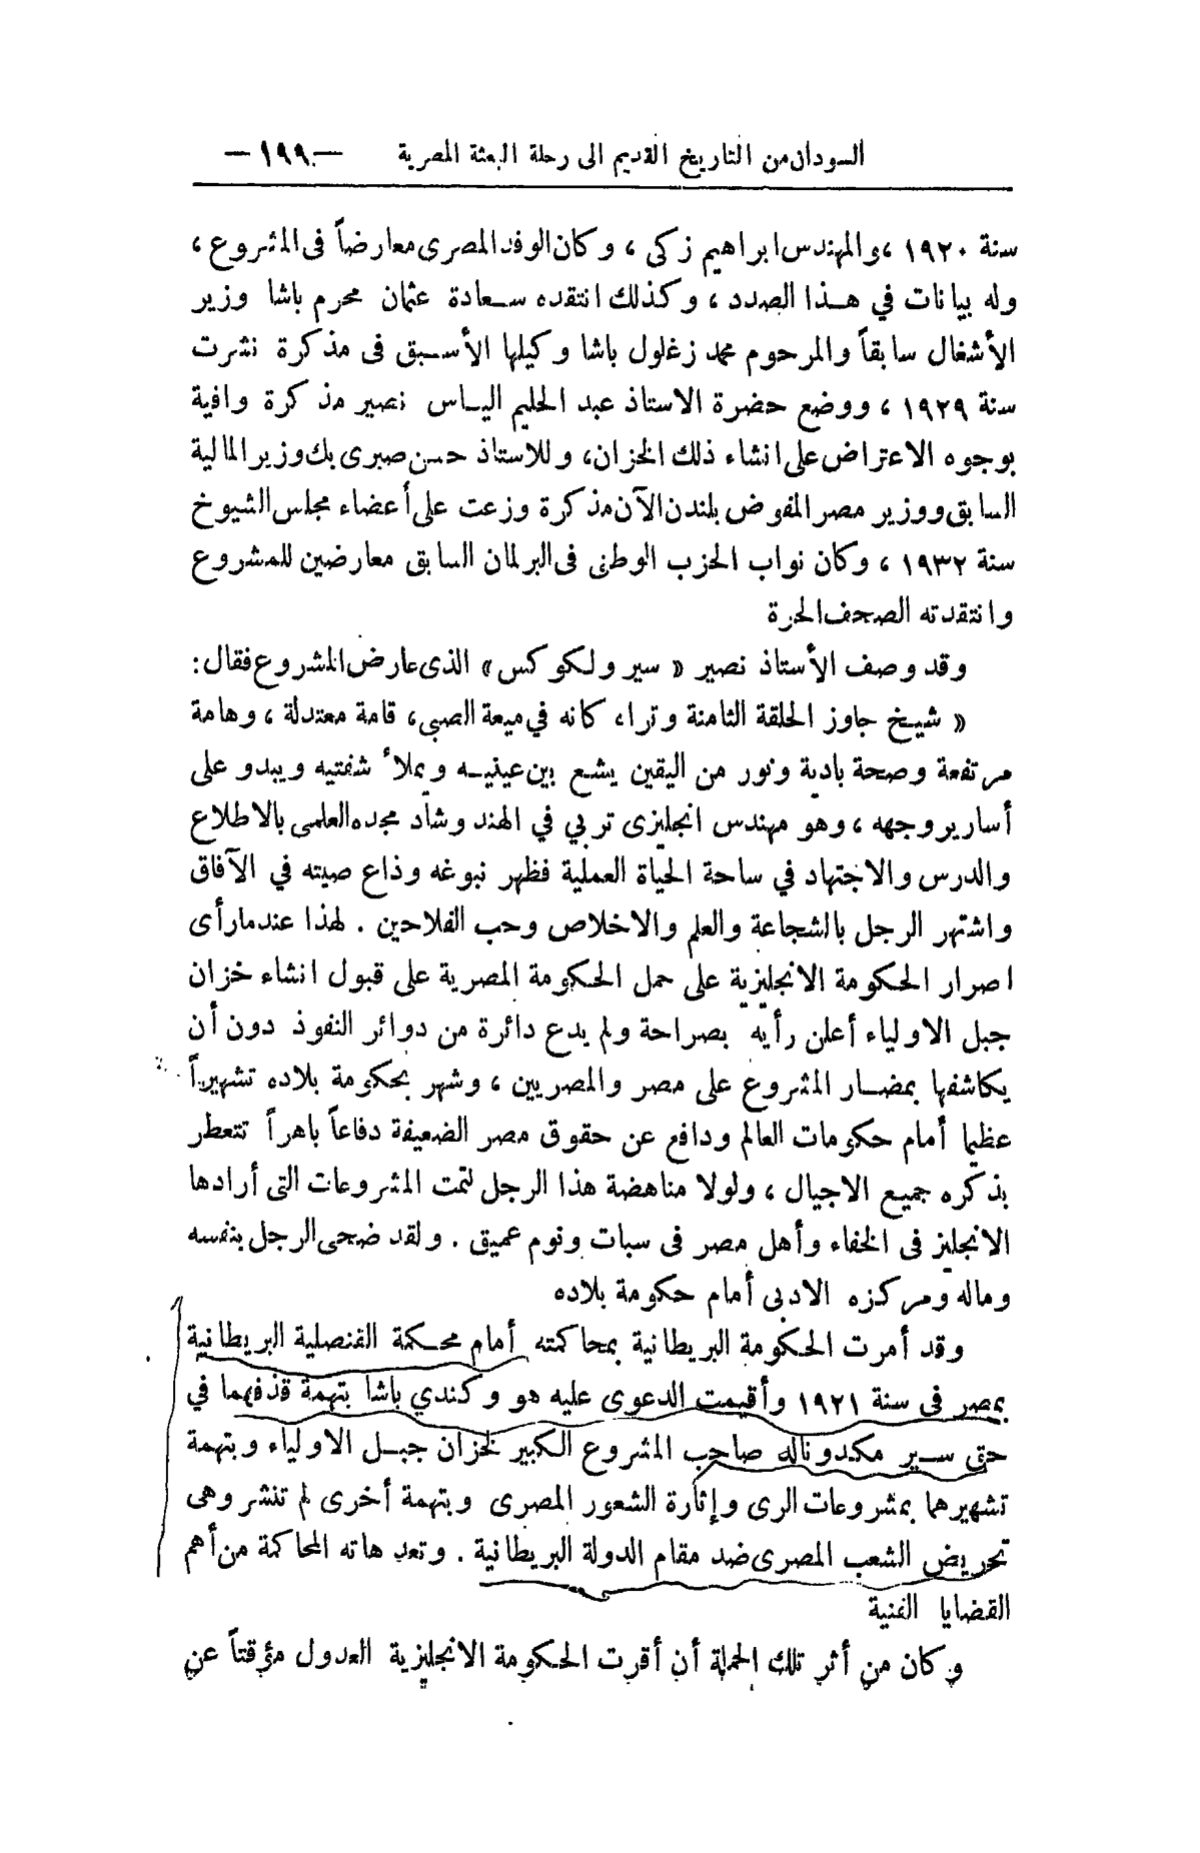 السودان من التاريخ القديم الى رحلة البعثة المصرية — ١٩٩ —
سنة ١٩٢٠ ، والمهندس ابراهيم زكى ، وكان الوفد المصرى معارضاً فى المشروع ،
وله بيانات في هذا الصدد ، وكذلك انتقده سعادة عثمان محرم باشا وزير
الأشغال سابقاً والمرحوم محمد زغلول باشا وكيلها الأسبق فى مذكرة نشرت
سنة ١٩٢٩ ، ووضع حضرة الاستاذ عبد الحليم الياس نصير مذكرة وافية
بوجوه الاعتراض على انشاء ذلك الخزان، وللاستاذ حسن صبرى بك وزير المالية
السابق ووزير مصر المفوض بلندن الآن مذكرة وزعت على أعضاء مجلس الشيوخ
سنة ١٩٣٢ ، وكان نواب الحزب الوطنى فى البرلمان السابق معارضين للمشروع
وانتقدته الصحف الحرة
وقد وصف الأستاذ نصير « سير ولكوكس » الذى عارض المشروع فقال :
« شيخ جاوز الحلقة الثامنة وتراه كانه في ميعة الصبى، قامة معتدلة ، وهامة
مرتفعة وصحة بادية ونور من اليقين يشع بين عينيه ويملأ شفتيه ويبدو على
أسارير وجهه ، وهو مهندس انجليزى تربي في الهند وشاد مجده العلمى بالاطلاع
والدرس والاجتهاد في ساحة الحياة العملية فظهر نبوغه وذاع صيته في الآفاق
واشتهر الرجل بالشجاعة والعلم والاخلاص وحب الفلاحين . لهذا عندما رأى
اصرار الحكومة الانجليزية على حمل الحكومة المصرية على قبول انشاء خزان
جبل الاولياء أعلن رأيه بصراحة ولم يدع دائرة من دوائر النفوذ دون أن
يكاشفها بمضار المشروع على مصر والمصريين ، وشهر بحكومة بلاده تشهيراً
عظيما أمام حكومات العالم ودافع عن حقوق مصر الضعيفة دفاعاً باهراً تتعطر
بذكره جميع الاجيال ، ولولا مناهضة هذا الرجل لتمت المشروعات التى أرادها
الانجليز فى الخفاء وأهل مصر فى سبات ونوم عميق . ولقد ضحى الرجل بنفسه
وماله ومركزه الادبى أمام حكومة بلاده
وقد أمرت الحكومة البريطانية بمحاكمته أمام محكمة القنصلية البريطانية
بمصر فى سنة ١٩٢١ وأقيمت الدعوى عليه هو وكندي باشا بتهمة قذفهما في
حق سير مكدونالد صاحب المشروع الكبير لخزان جبل الاولياء وبتهمة
تشهيرهما بمشروعات الرى وإثارة الشعور المصرى وبتهمة أخرى لم تنشر وهى
تحريض الشعب المصرى ضد مقام الدولة البريطانية . وتعد هاته المحاكمة من أهم
القضايا الفنية
وكان من أثر تلك الحملة أن أقرت الحكومة الانجليزية العدول مؤقتاً عن